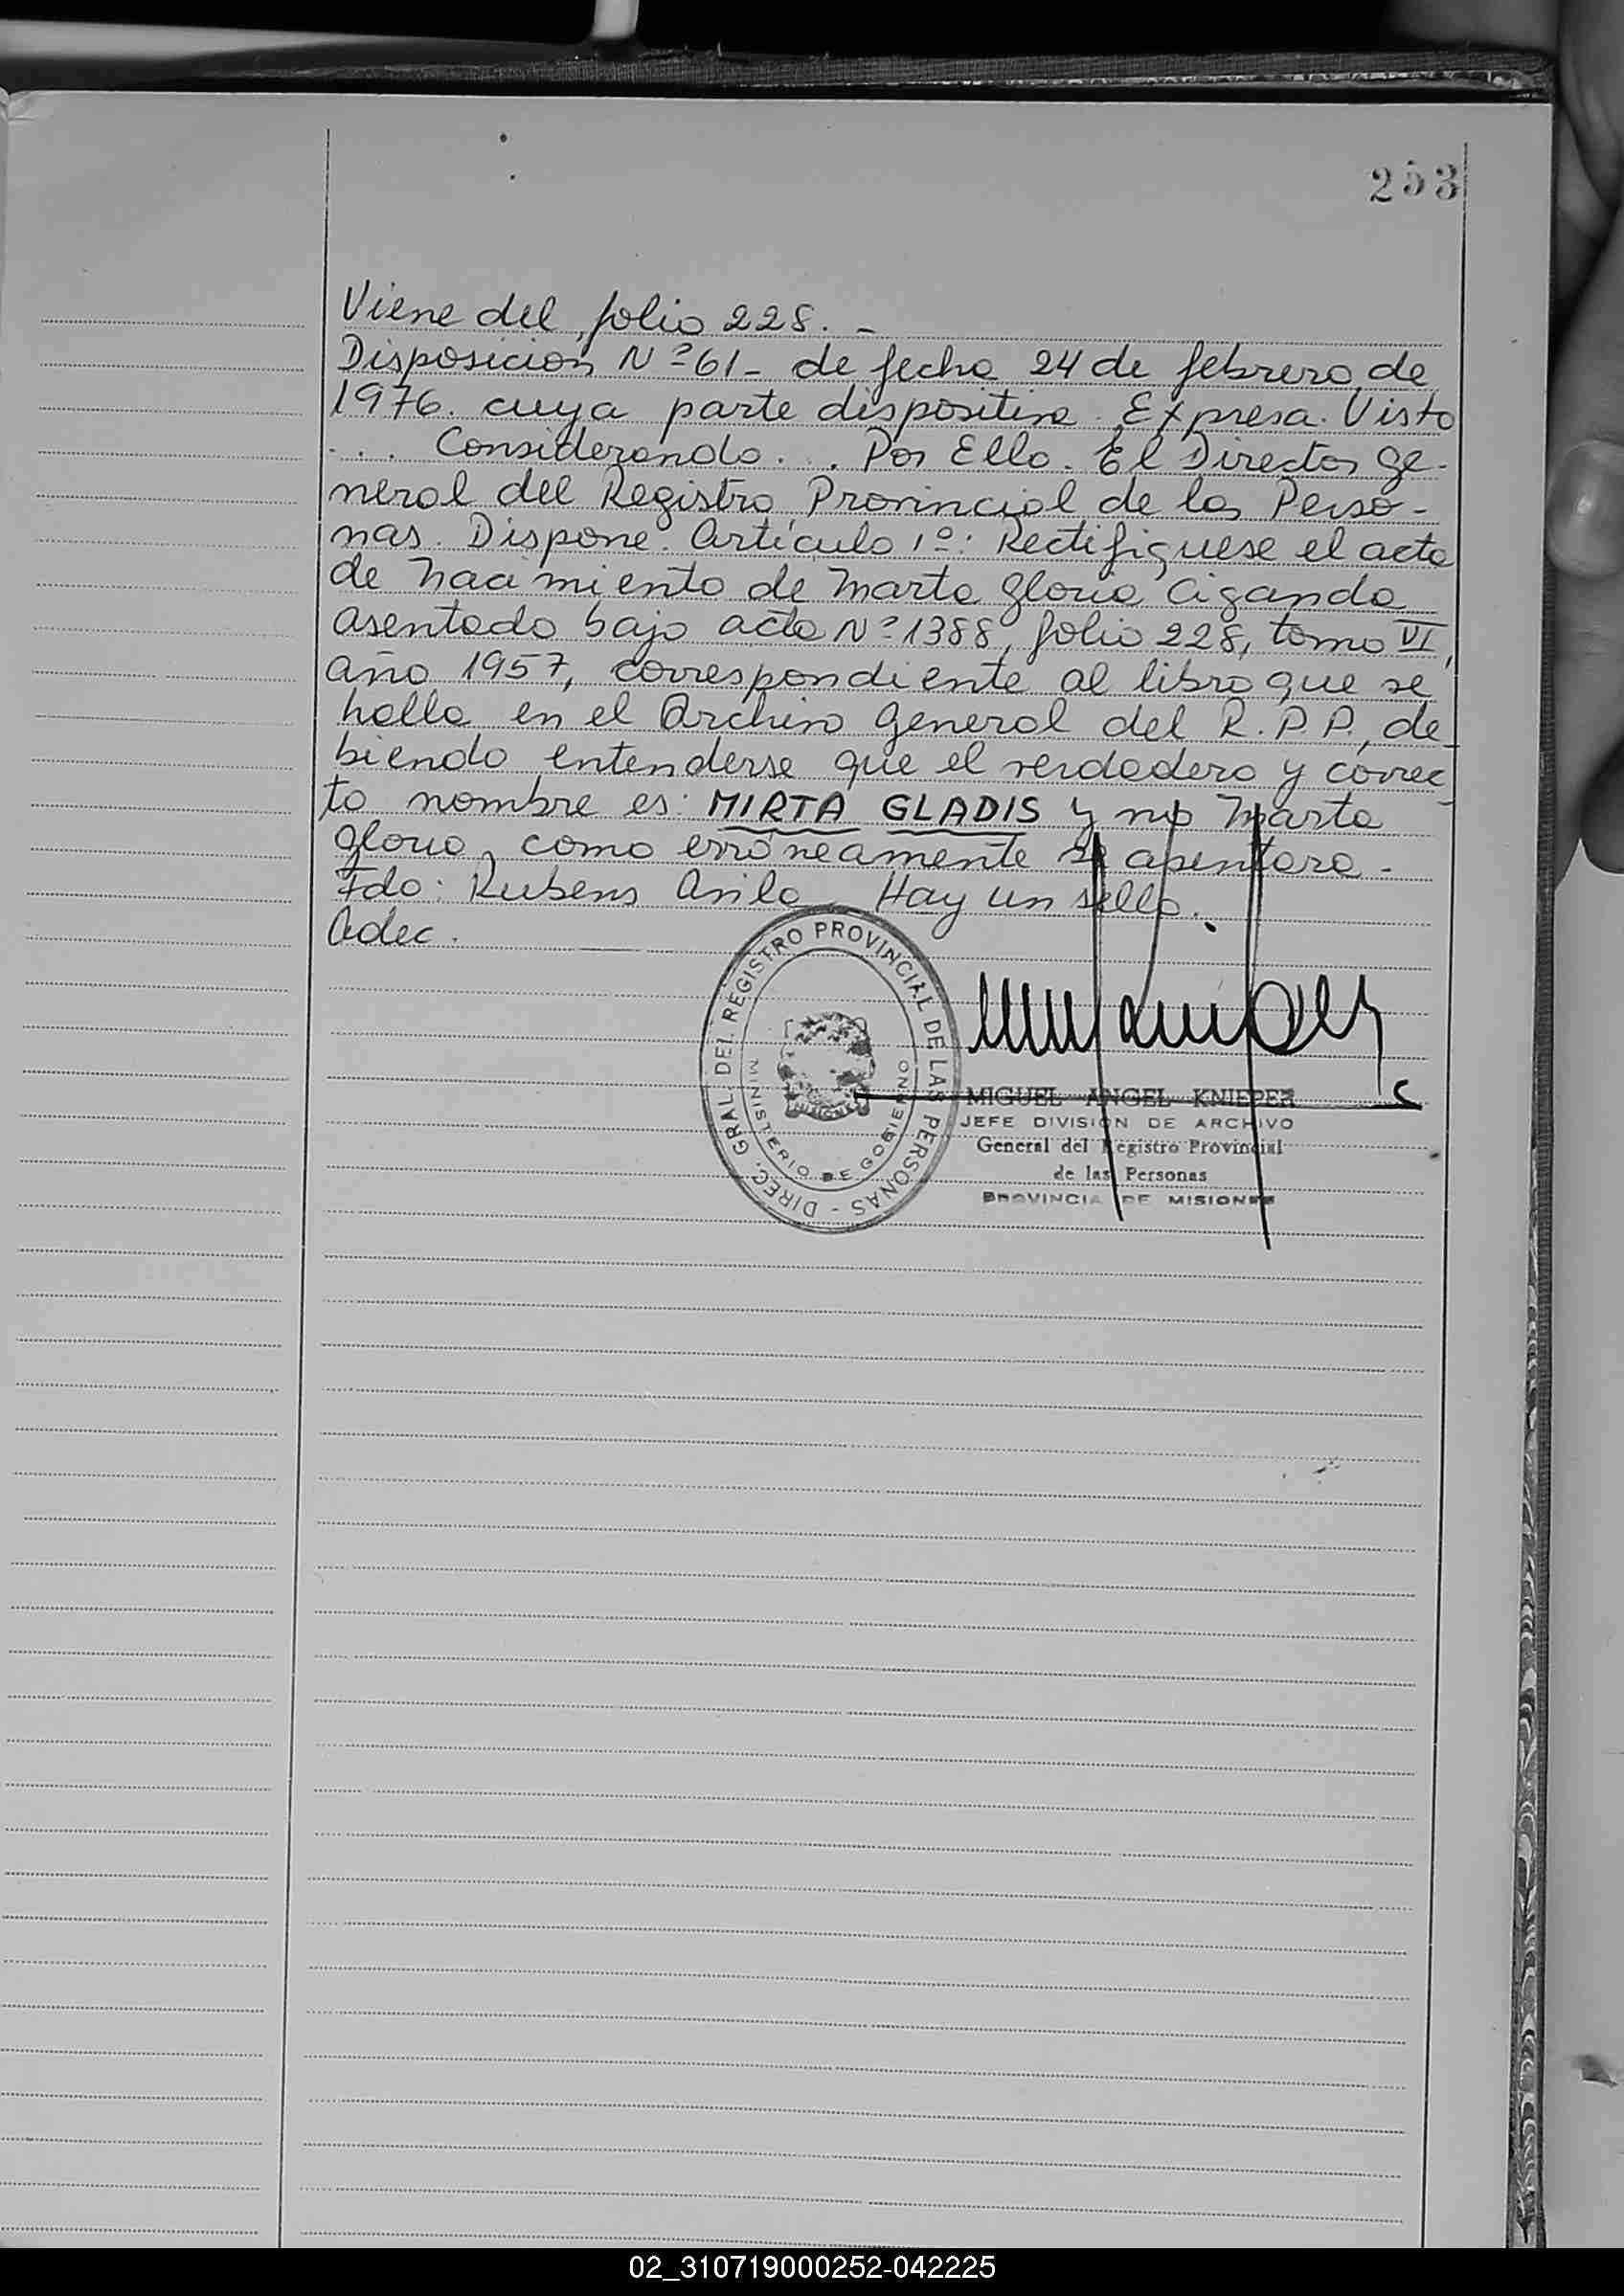 253
Viene del folio 228. -
Disposición Nº 61 - de fecha 24 de febrero de
1976. cuya parte dispositiva. Expresa. Visto
... Considerando... Por Ello. El Director Ge-
neral del Registro Provincial de las Perso-
nas. Dispone. Artículo 1º: Rectifiquese el acta
de nacimiento de Marta Gloria Ciganda
asentado bajo acta Nº 1388, folio 228, tomo VI,
año 1957, correspondiente al libro que se
halla en el Archivo General del R.P.P., de-
biendo entenderse que el verdadero y correc-
to nombre es: MIRTA GLADIS y no Marta
Gloria, como erróneamente se asentara.-
Fdo: Rubens Avila Hay un sello.
Adec.
DIREC. GRAL. DEL REGISTRO PROVINCIAL DE LAS PERSONAS -
MINISTERIO DE GOBIERNO
MISIONES
MIGUEL ANGEL KNIEPER
JEFE DIVISION DE ARCHIVO
General del Registro Provincial
de las Personas
PROVINCIA DE MISIONES
02_310719000252-042225